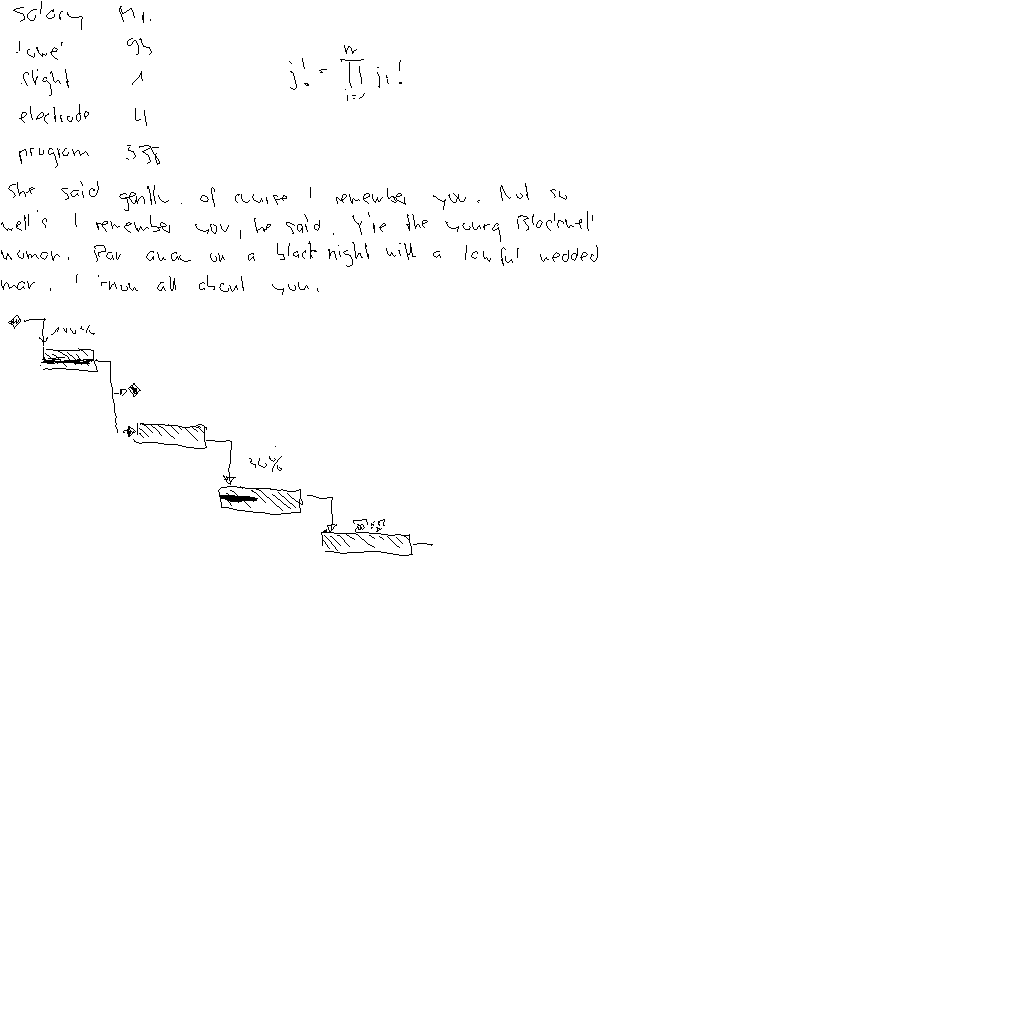 salary Mr.
'owe' 93
slight 1
j! = ∏ i=1 n ji!
electrode 4
program 338
She said gently. Of course I remember you. Not so
well's I remember you, he said. Y're the young Blackwell
woman. Ran away on a black night with a lawful wedded
man. I know all about you.
100%
36%